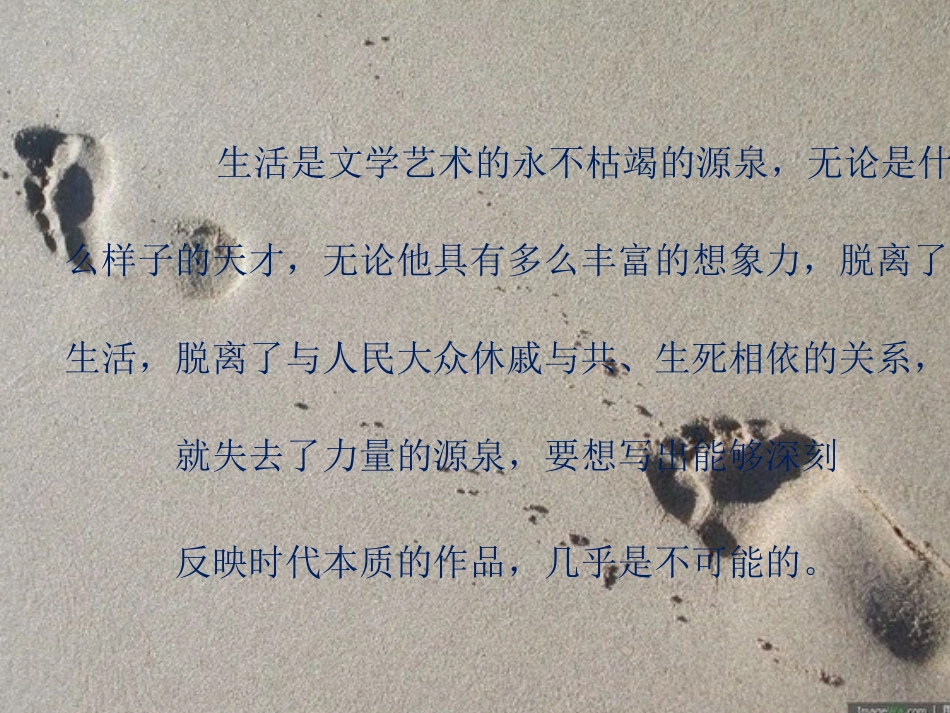 生活是文学艺术的永不枯竭的源泉，无论是什
么样子的天才，无论他具有多么丰富的想象力，脱离了
生活，脱离了与人民大众休戚与共、生死相依的关系，
就失去了力量的源泉，要想写出能够深刻
反映时代本质的作品，几乎是不可能的。